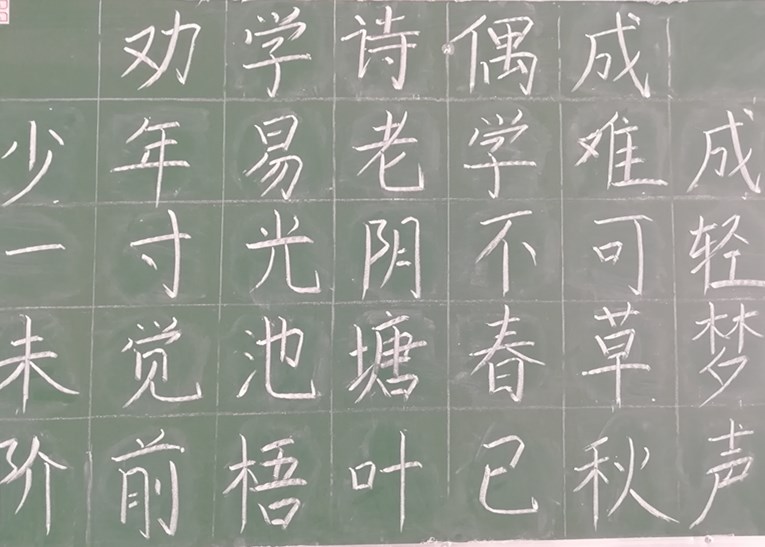 劝学诗偶成
少年易老学难成
一寸光阴不可轻
未觉池塘春草梦
阶前梧叶已秋声